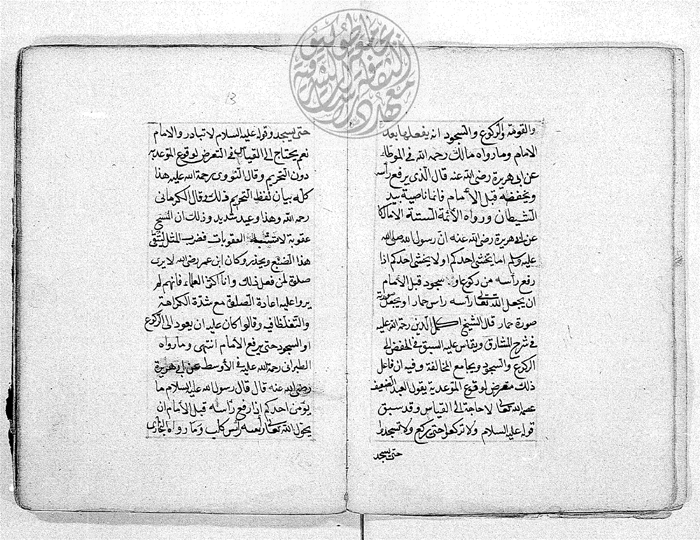 والقومة والركوع والسجود انه يفعلها بعد
الامام وما رواه مالك رحمه الله في الموطاء
عن ابى هريرة رضى الله عنه قال الذى يرفع رأسه
ويخفضه قبل الأمام فانما ناصية بيد
الشيطان ورواه الأئمة الستة الا مالكا
عن ابى هريرة رضى الله عنه ان رسول الله صلى الله
عليه وسلم اما يخشى احدكم او لا يخشى احدكم اذا
رفع رأسه من ركوع او سجود قبل الامام
ان يجعل الله تعالى رأسه رأس حمار او يجعل صورته
صورة حمار قال الشيخ اكمل الدين رحمة الله عليه
في شرح المشارق ويقاس عليه السبق في الخفض الى
الركوع والسجود بجامع المخالفة وفيه ان فاعل
ذلك متعرض لوقوع الموعد به يقول العبد الضعيف
عصمه الله تعالى لا حاجة الى القياس وقد سبق
قوله عليه السلام ولا تركعوا حتى يركع ولا تسجدوا
حتى يسجد
13
حتى يسجد وقوله عليه السلام لا تبادروا الامام
نعم يحتاج الى القياس في التعرض لوقوع الموعد به
دون التحريم وقال النووى رحمة الله عليه هذا
كله بيان لغلظ التحريم في ذلك وقال الكرمانى
رحمه الله وهذا وعيد شديد وذلك ان المسخ
عقوبة لا تشبه العقوبات فضرب المثل ليتقى
هذا الصنيع ويحذر وكان ابن عمر رضى الله لا يرى
صلوة لمن فعل ذلك واما اكثر العلماء فانهم لم
يروا عليه اعادة الصلوة مع شدة الكراهة
والتغليظ فيه وقالوا كان عليه ان يعود الى الركوع
او السجود حتى يرفع الامام انتهى وما رواه
الطبرانى رحمة الله عليه في الأوسط عن ابى هريرة
رضى الله عنه قال قال رسول الله عليه السلام ما
يؤمن احدكم اذا رفع رأسه قبل الأمام ان
يحول الله تعالى رأسه رأس كلب وما رواه البخارى